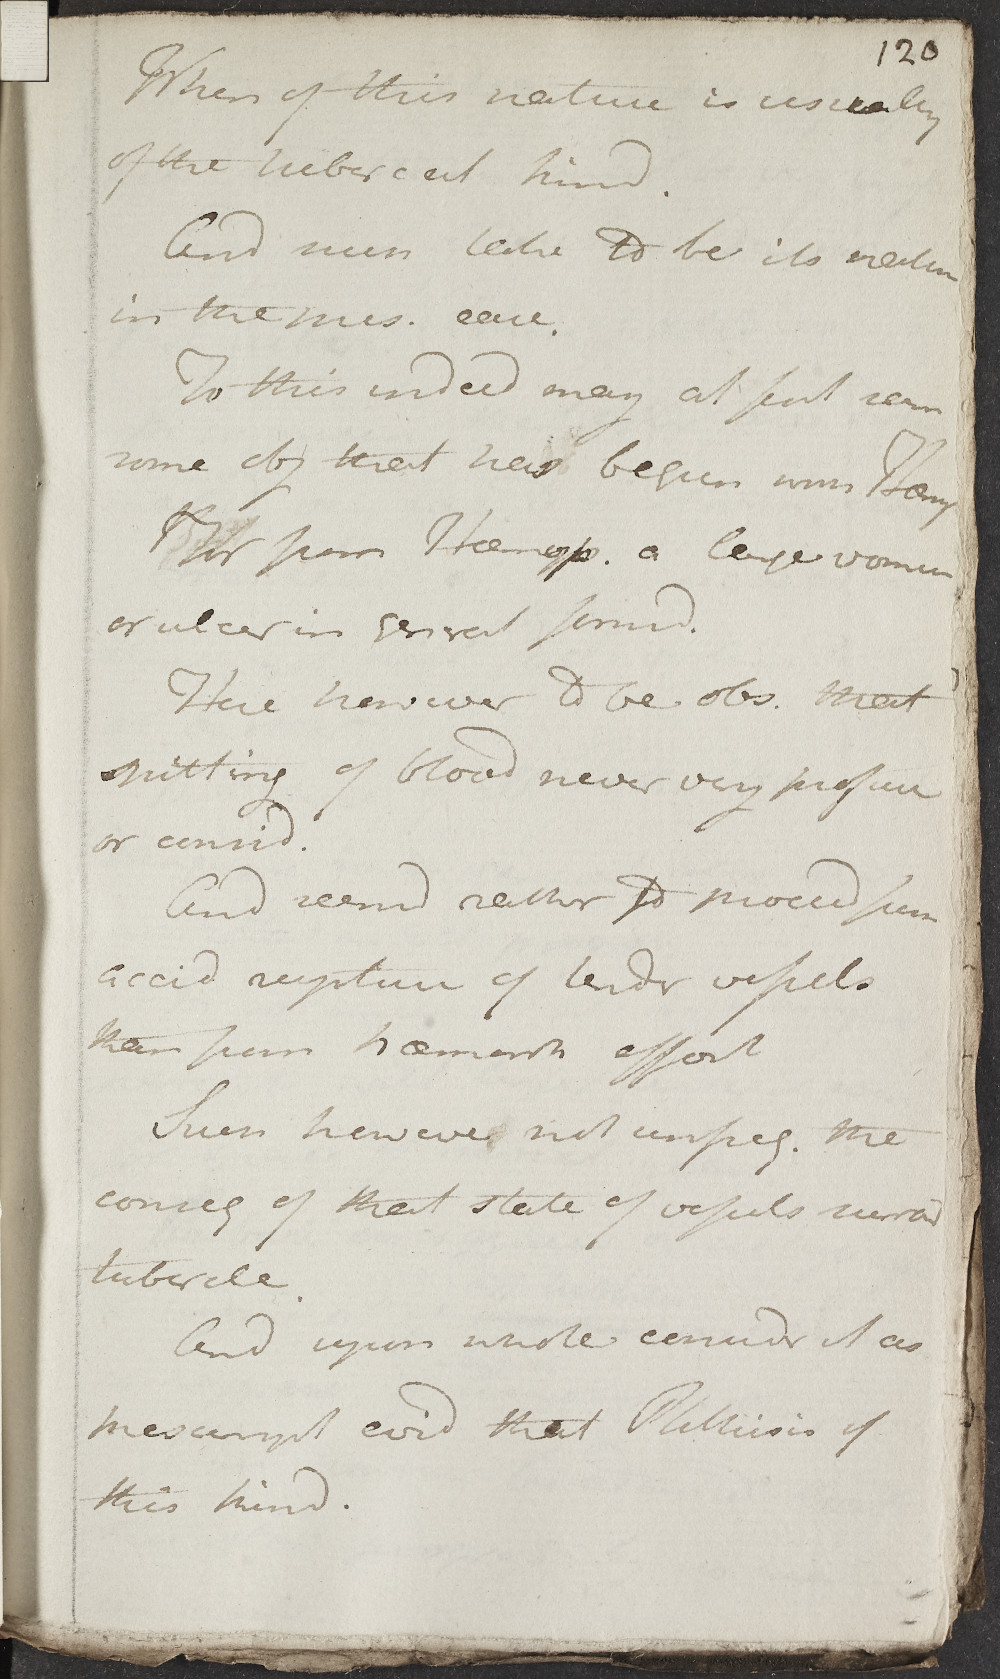 120
When of this nature is usually
of the tubercul kind.
And such take to be its nature
in the pres. case.
To this indeed may at first seem
some obj that has begun with Hæm
For from Hæmop. a large vomica
or ulcer in general formd.
Here however to be obs. that
spitting of blood never very profuse
or consid.
And seemd rather to proceed from
accid rupture of tender vessels
than from hæmorrh effort
Such however not unfreq. the
conseq of that state of vessels surrod
tubercle.
And upon whole consider it as
presumpt evid that Phthisis of
this kind.